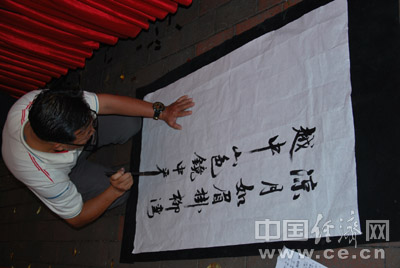 涼月如眉掛柳灣
越中山色鏡中
中国经济网
www.ce.cn